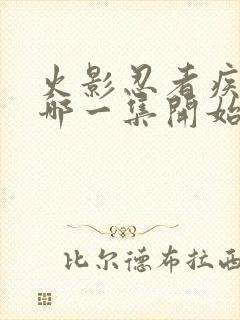 火影忍者疾
哪一集開始
比尔德布拉西